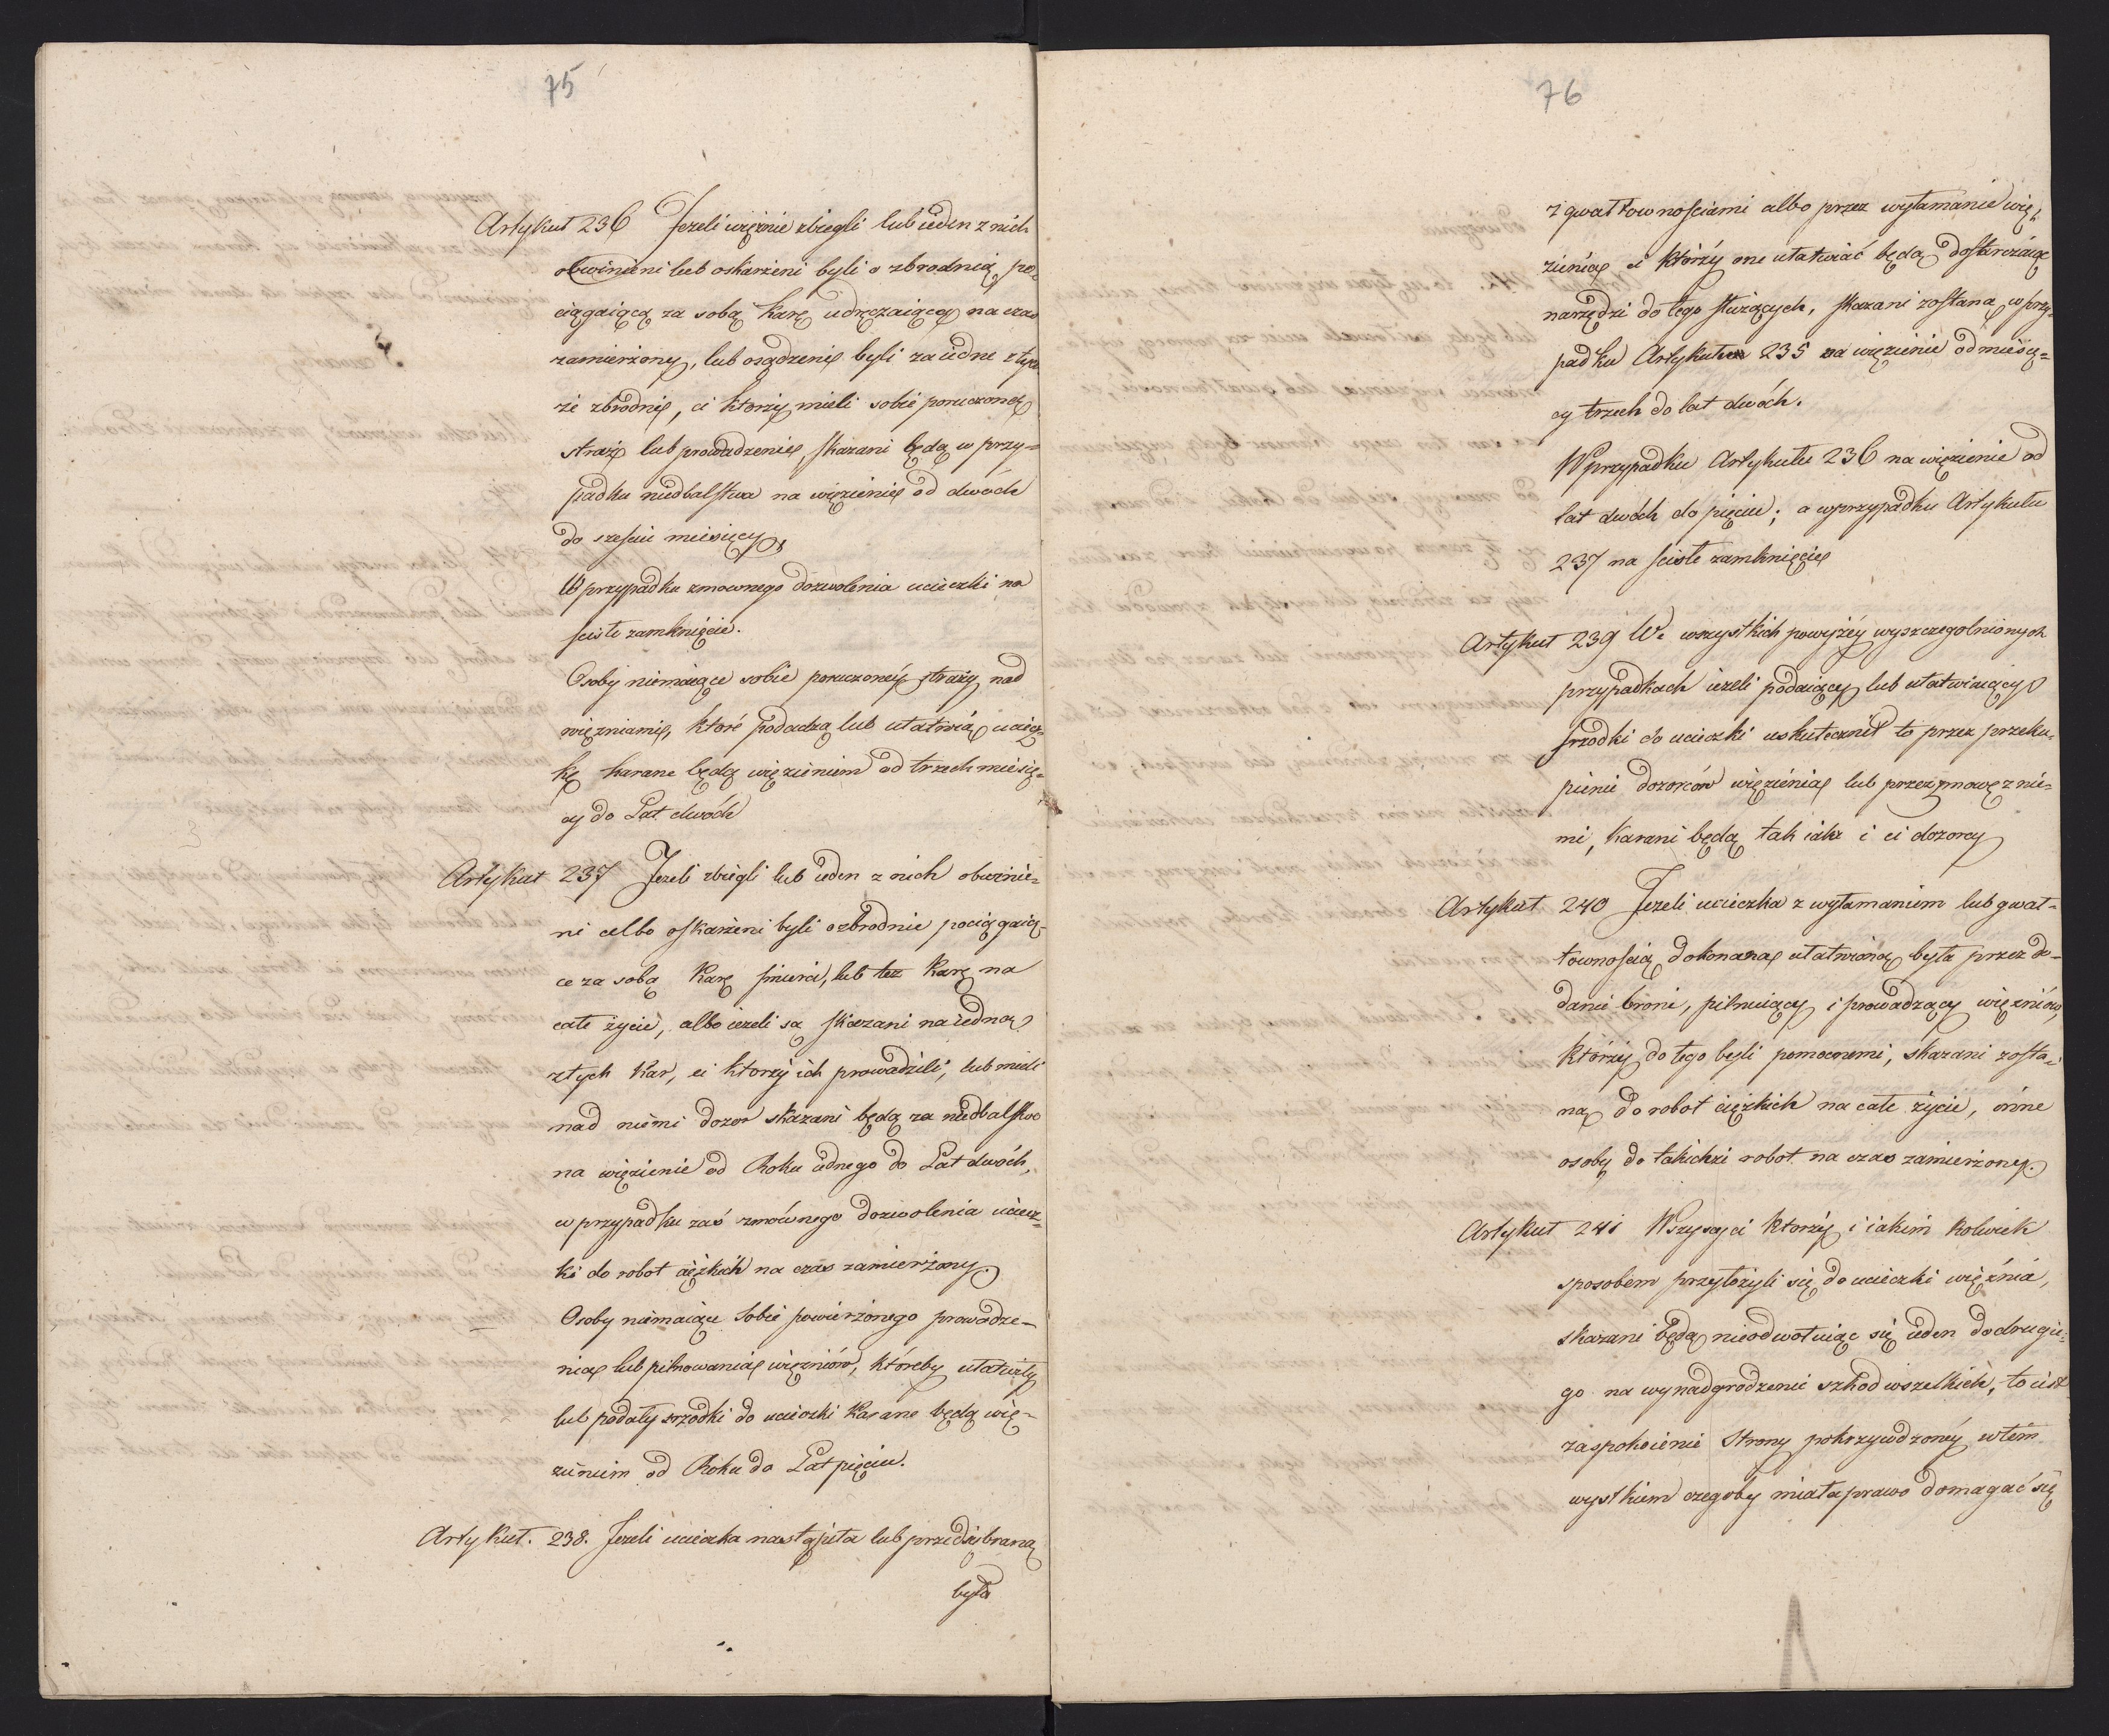 75
Artykuł 236 Jeżeli więźnie zbiegli lub ieden z nich
obwinieni lub oskarżeni byli o zbrodnią po-
ciągaiącą za sobą karę udręczaiącą na czas
zamierżony, lub osądzenie byli za iedne z tych
że zbrodnie, ci ktorzy mieli sobie poruczoney
straż lub prowadzenie, skazani będą w przy=
padku niedbalstwa na więzienie od dwóch
do sześciu miesięcy,
W przypadku zmownego dozwolenia ucieczki na
scisłe zamknięcie.
Osoby niemaiące sobie poruczoney straży nad
więzniami, które podadzą lub ułatwią uciecz-
kę karane będą więzieniem od trzech miesię=
cy do Lat dwóch
Artykuł 237 Jeżeli zbiegli lub ieden z nich obwinie=
ni albo oskarżeni byli o zbrodnie pociągaią-
ce za sobą Karę śmierci, lub też Karę na
całe życie, albo ieżeli są skazani na iedną
z tych Kar, ci ktorzy ich prowadzili, lub mieli
nad niemi dozor skazani będą za niedbalstwo
na więzienie od Roku iednego do Lat dwóch,
w przypadku zaś zmównego dozwolenia uciecz-
ki do robot ciężkich na czas zamierżony.
Osoby niemaiące sobie powierżonego prowadze-
nia lub pilnowania więzniów, któreby ułatwiły
lub podały srzodki do ucieczki Karane będą wię-
zieniem od Roku do Lat pięciu.
Artykuł. 238. Jeżeli ucieczka nastąpiła lub przedsiębraną
była
76
z gwałtownościami albo przez wyłamanie wię-
zienia ci którzy one ułatwiać będą dostarczaiąc
narzędzi do tego służących, skazani zostaną w przy-
padku Artykułu 235 na więzienie od miesię=
cy trzech do lat dwóch.
W przypadku Artykułu 236 na więzienie od
lat dwóch do pięciu; a w przypadku Artykułu
237 na scisłe zamknięcie
Artykuł 239 We wszystkich powyżéy wyszczegolnionych
przypadkach ieżeli podaiący lub ułatwiaiący
srzodki do ucieczki uskutecznił to przez przeku-
pienie dozorców więzienia lub przez zmowę z nie=
mi, karani będą tak iak i ci dozorcy
Artykuł 240 Jeżeli ucieczka z wyłamaniem lub gwał-
townością dokonana ułatwioną była przez do-
danie broni, pilnuiący i prowadzący więzniów,
którzy do tego byli pomocnemi, skazani zosta-
ną do robot ciężkich na całe życie, inne
osoby do takichże robot na czas zamierżony.
Artykuł 241 Wszyscy ci ktorzy i iakim kolwiek
sposobem przyłożyli się do ucieczki więźnia,
skazani będą nieodwołuiąc się ieden do drugie-
go na wynadgrodzenie szkod wszelkich, to iest
zaspokoienie Strony pokrzywdzoney w tém
wszystkiem czegoby miała prawo domagać się